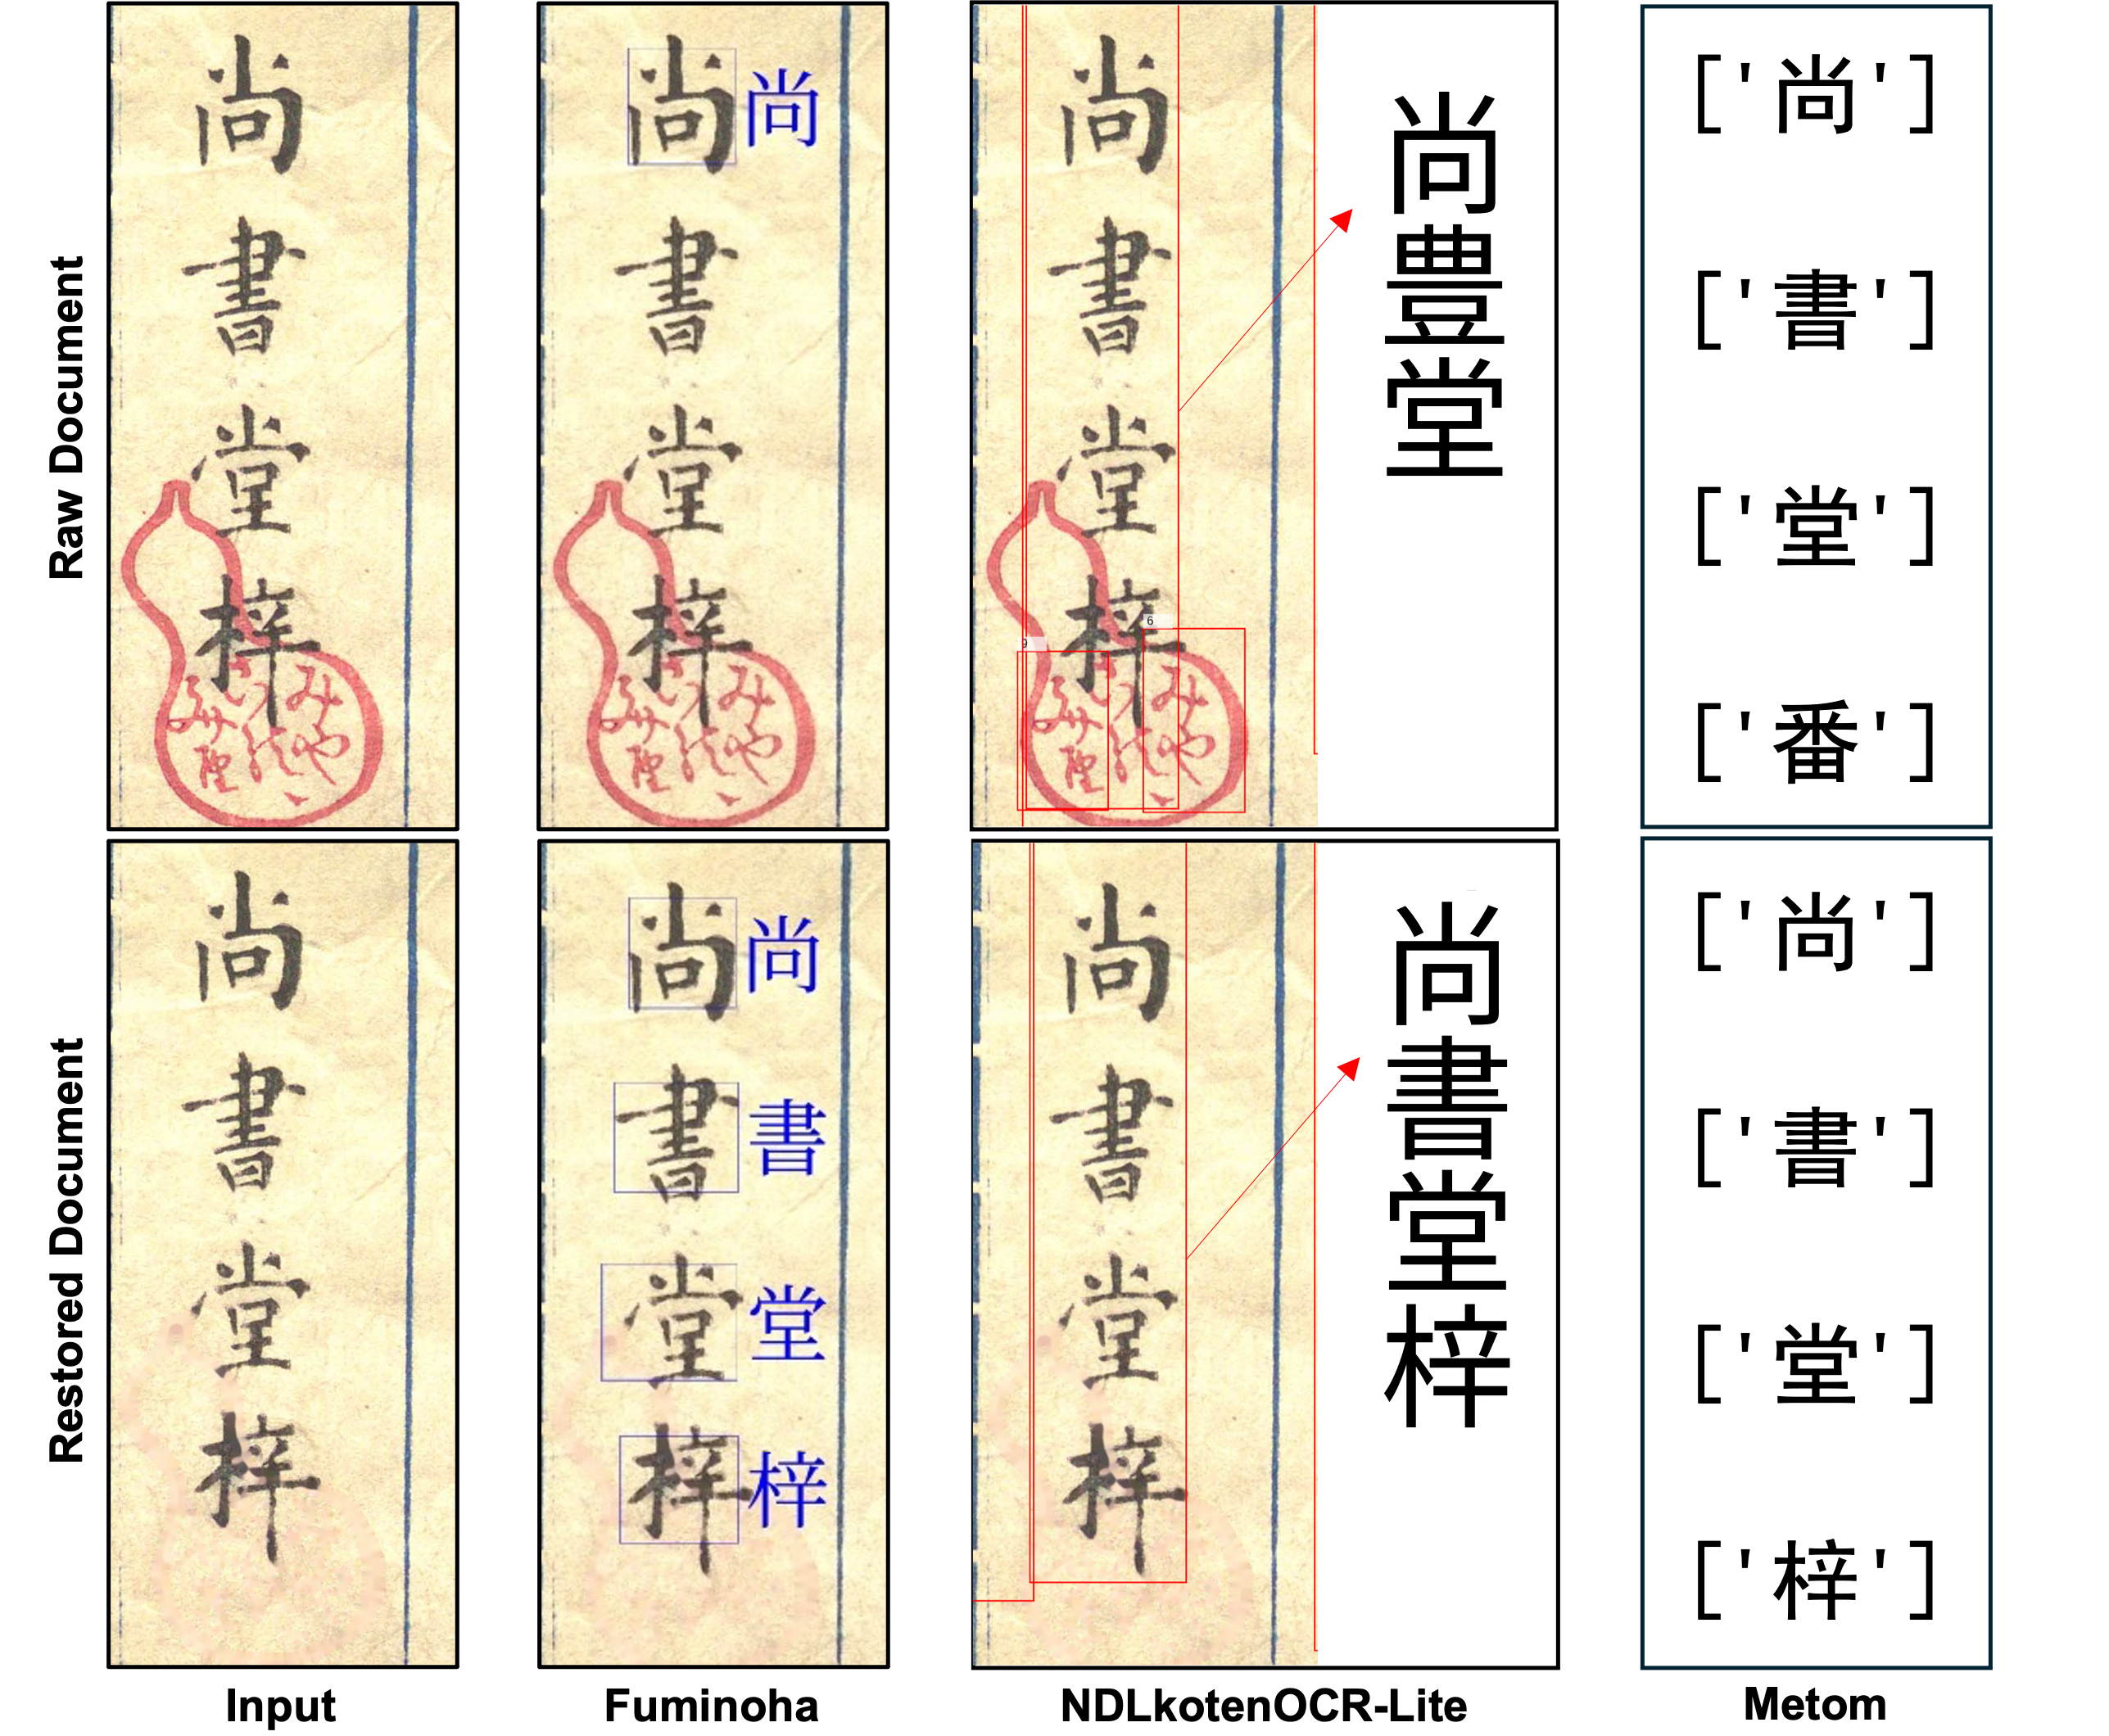 Raw Document
尚書堂梓
みや
尚書堂梓
尚
尚書堂梓
みや
9
6
尚豊堂
['尚']
['書']
['堂']
['番']
Restored Document
尚書堂梓
尚書堂梓
尚
書
堂
梓
尚書堂梓
尚書堂梓
['尚']
['書']
['堂']
['梓']
Input
Fuminoha
NDLkotenOCR-Lite
Metom